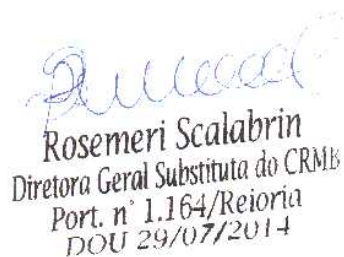 Rosemeri Scalabrin
Diretora Geral Substituta do CRMB
Port. n° 1.164/Reioria
DOU 29/07/2014